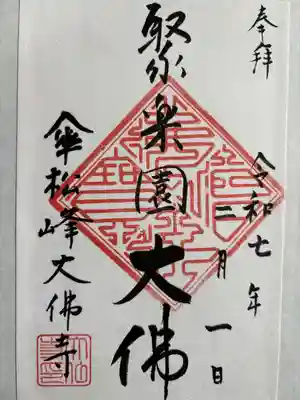 奉拝
令和七年二月一日
聚楽園大佛
傘松峰大佛寺